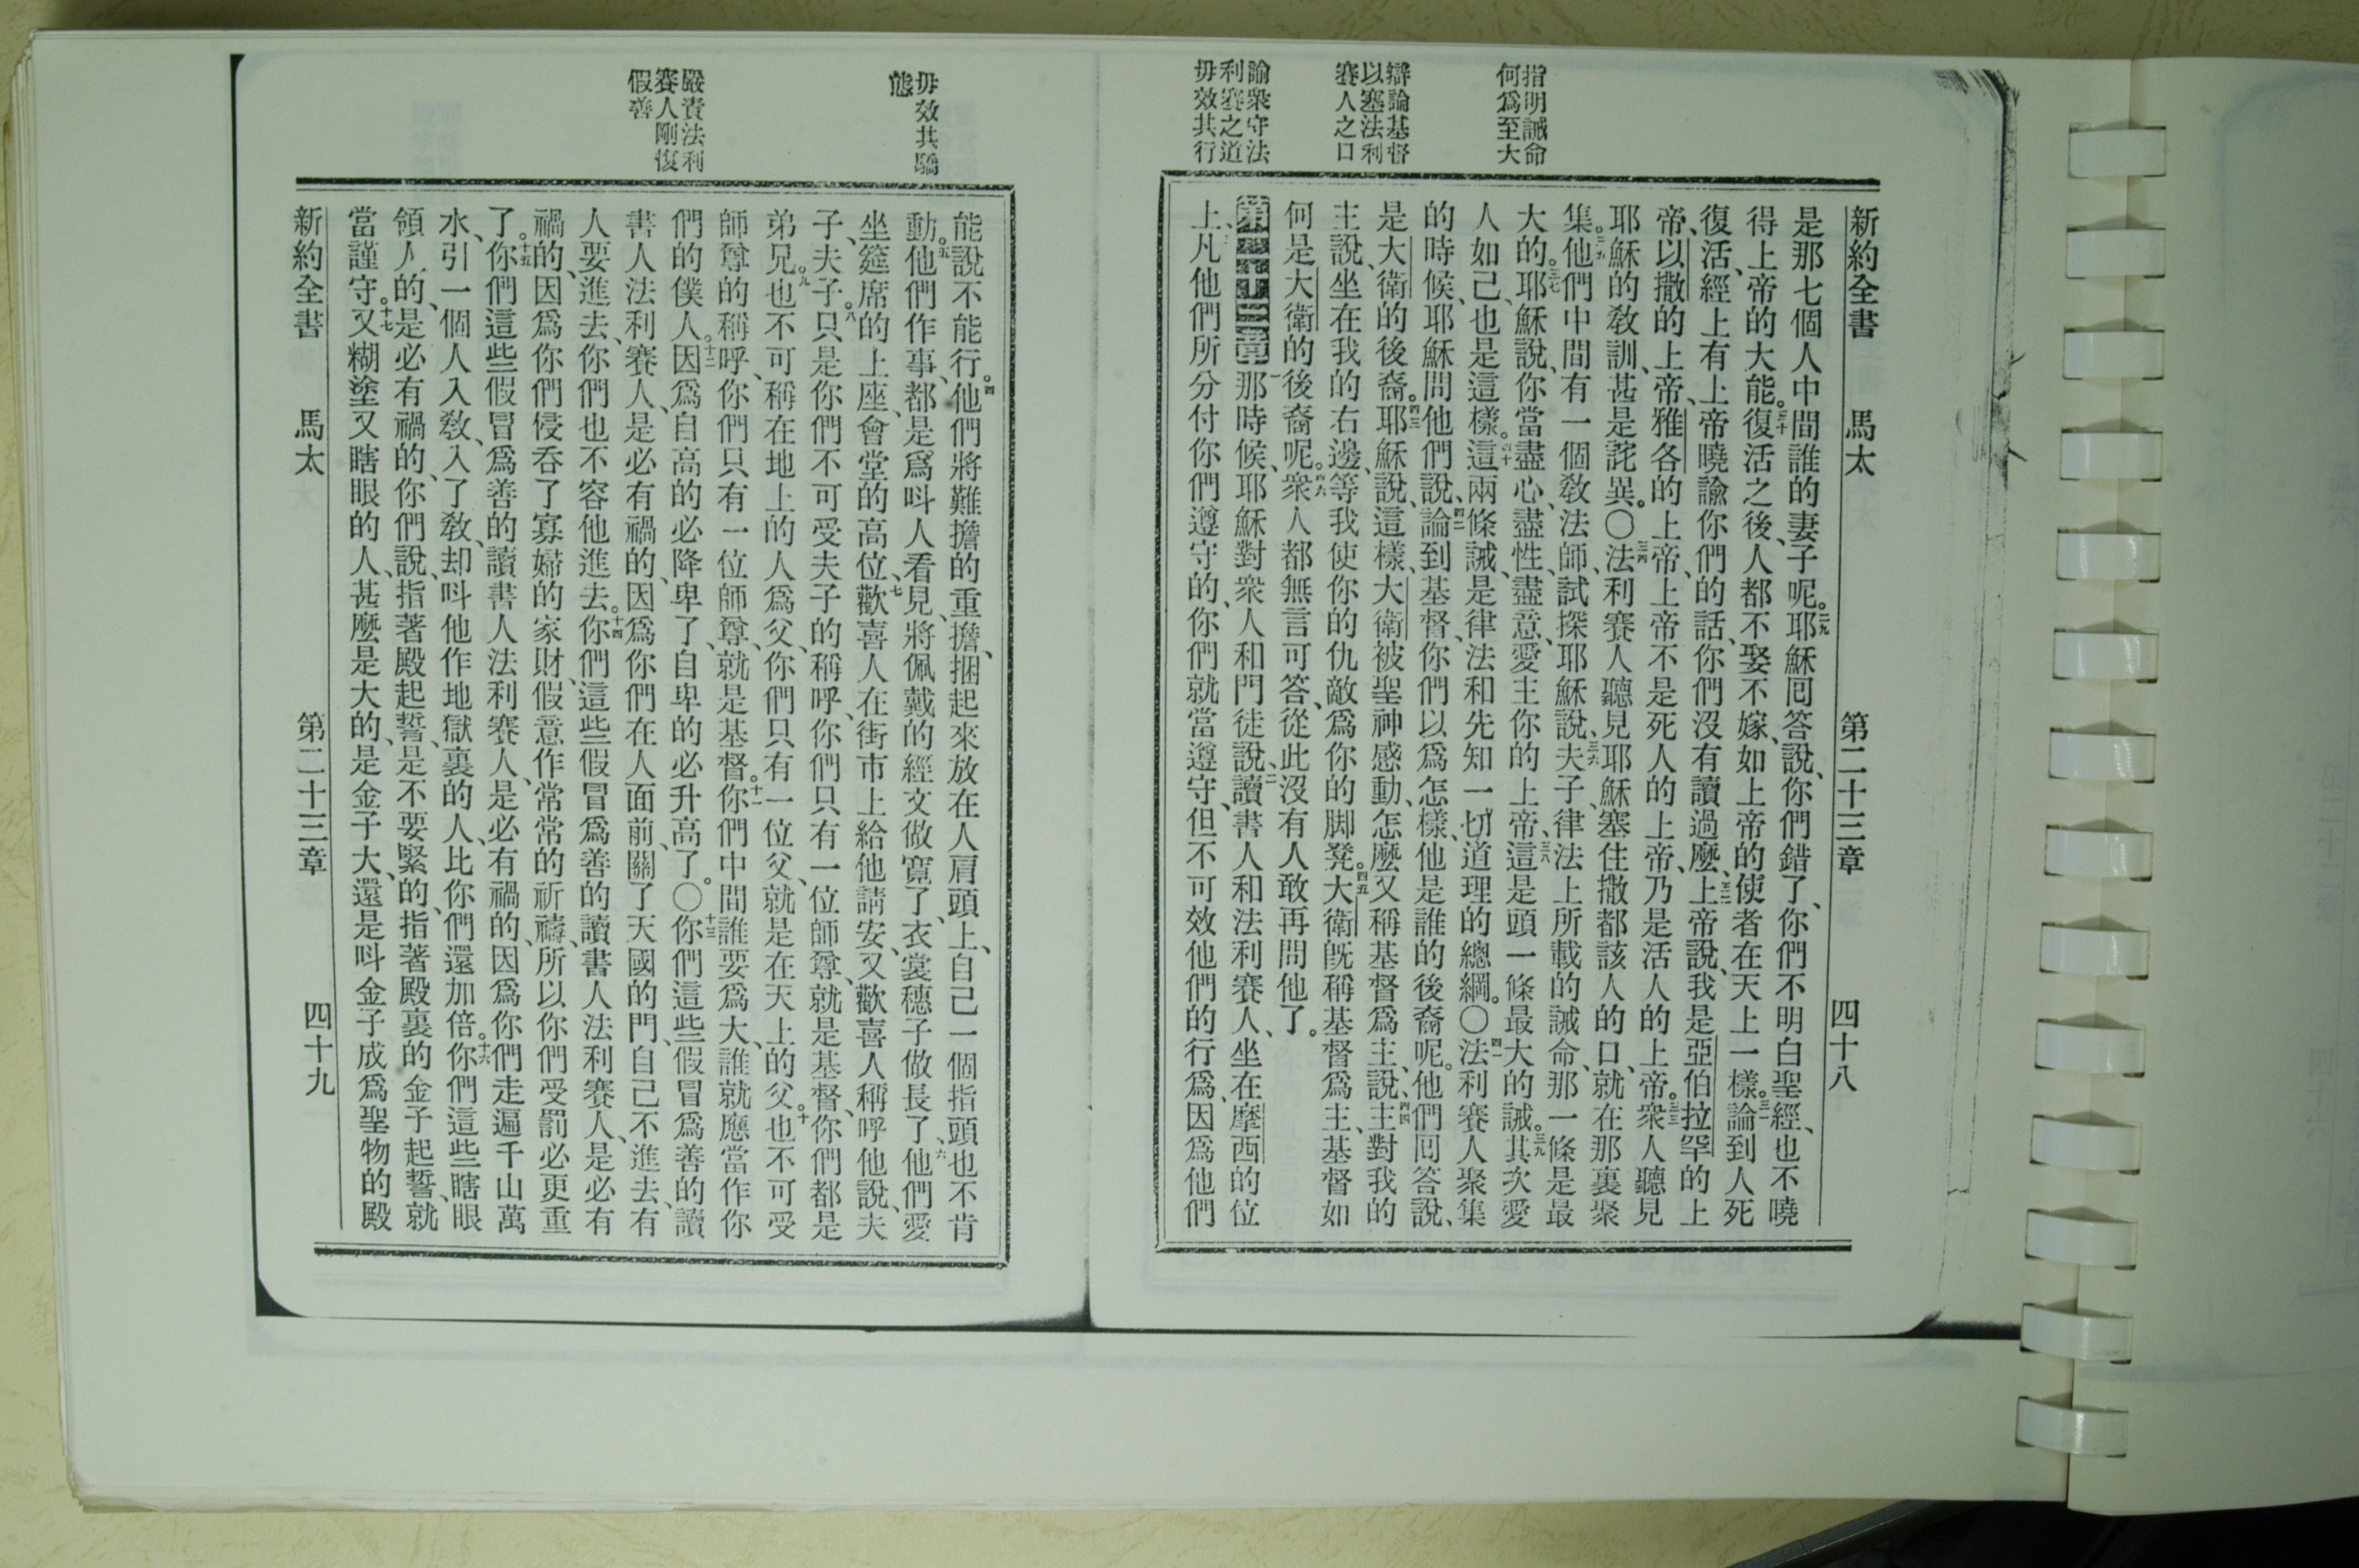 指明誡命
何爲至大
辯論基督
以塞法利
賽人之口
諭衆守法
利賽之道
毋效其行
新約全書　馬太　第二十三章　四十八
是那七個人中間誰的妻子呢。二九耶穌囘答說、你們錯了、你們不明白聖經、也不曉
得上帝的大能。三十復活之後、人都不娶不嫁、如上帝的使者在天上一樣。三一論到人死
復活、經上有上帝曉諭你們的話、你們沒有讀過麼、三二上帝說、我是亞伯拉罕的上
帝、以撒的上帝、雅各的上帝、上帝不是死人的上帝、乃是活人的上帝。三三衆人聽見
耶穌的敎訓、甚是詫異。〇三四法利賽人聽見耶穌塞住撒都該人的口、就在那裏聚
集。三五他們中間有一個敎法師、試探耶穌說、三六夫子、律法上所載的誡命、那一條是最
大的。三七耶穌說、你當盡心、盡性、盡意、愛主你的上帝、三八這是頭一條最大的誡。三九其次愛
人如己、也是這樣。四十這兩條誡、是律法和先知一切道理的總綱。〇四一法利賽人聚集
的時候、耶穌問他們說、四二論到基督、你們以爲怎樣、他是誰的後裔呢。他們囘答說、
是大衛的後裔。四三耶穌說、這樣、大衛被聖神感動、怎麼又稱基督爲主、說、四四主對我的
主說、坐在我的右邊、等我使你的仇敵爲你的脚凳。四五大衛旣稱基督爲主、基督如
何是大衛的後裔呢。四六衆人都無言可答、從此沒有人敢再問他了。
第二十三章一那時候、耶穌對衆人和門徒說、二讀書人和法利賽人、坐在摩西的位
上、三凡他們所分付你們遵守的、你們就當遵守、但不可效他們的行爲、因爲他們
毋效其驕
態
嚴責法利
賽人剛愎
假善
能說不能行。四他們將難擔的重擔、捆起來放在人肩頭上、自己一個指頭也不肯
動。五他們作事、都是爲呌人看見、將佩戴的經文做寬了、衣裳穗子做長了、六他們愛
坐筵席的上座、會堂的高位、七歡喜人在街市上給他請安、又歡喜人稱呼他說、夫
子、夫子。八只是你們不可受夫子的稱呼、你們只有一位師尊、就是基督、你們都是
弟兄。九也不可稱在地上的人爲父、你們只有一位父、就是在天上的父。十也不可受
師尊的稱呼、你們只有一位師尊、就是基督。十一你們中間誰要爲大、誰就應當作你
們的僕人。十二因爲自高的必降卑了、自卑的必升高了。〇十三你們這些假冒爲善的讀
書人法利賽人、是必有禍的、因爲你們在人面前、關了天國的門、自己不進去、有
人要進去、你們也不容他進去。十四你們這些假冒爲善的讀書人法利賽人、是必有
禍的、因爲你們侵吞了寡婦的家財、假意作常常的祈禱、所以你們受罰必更重
了。十五你們這些假冒爲善的讀書人法利賽人、是必有禍的、因爲你們走遍千山萬
水、引一個人入敎、入了敎、却呌他作地獄裏的人、比你們還加倍。十六你們這些瞎眼
領人的、是必有禍的、你們說、指著殿起誓、是不要緊的、指著殿裏的金子起誓、就
當謹守。十七又糊塗又瞎眼的人、甚麼是大的、是金子大、還是呌金子成爲聖物的殿
新約全書　馬太　第二十三章　四十九